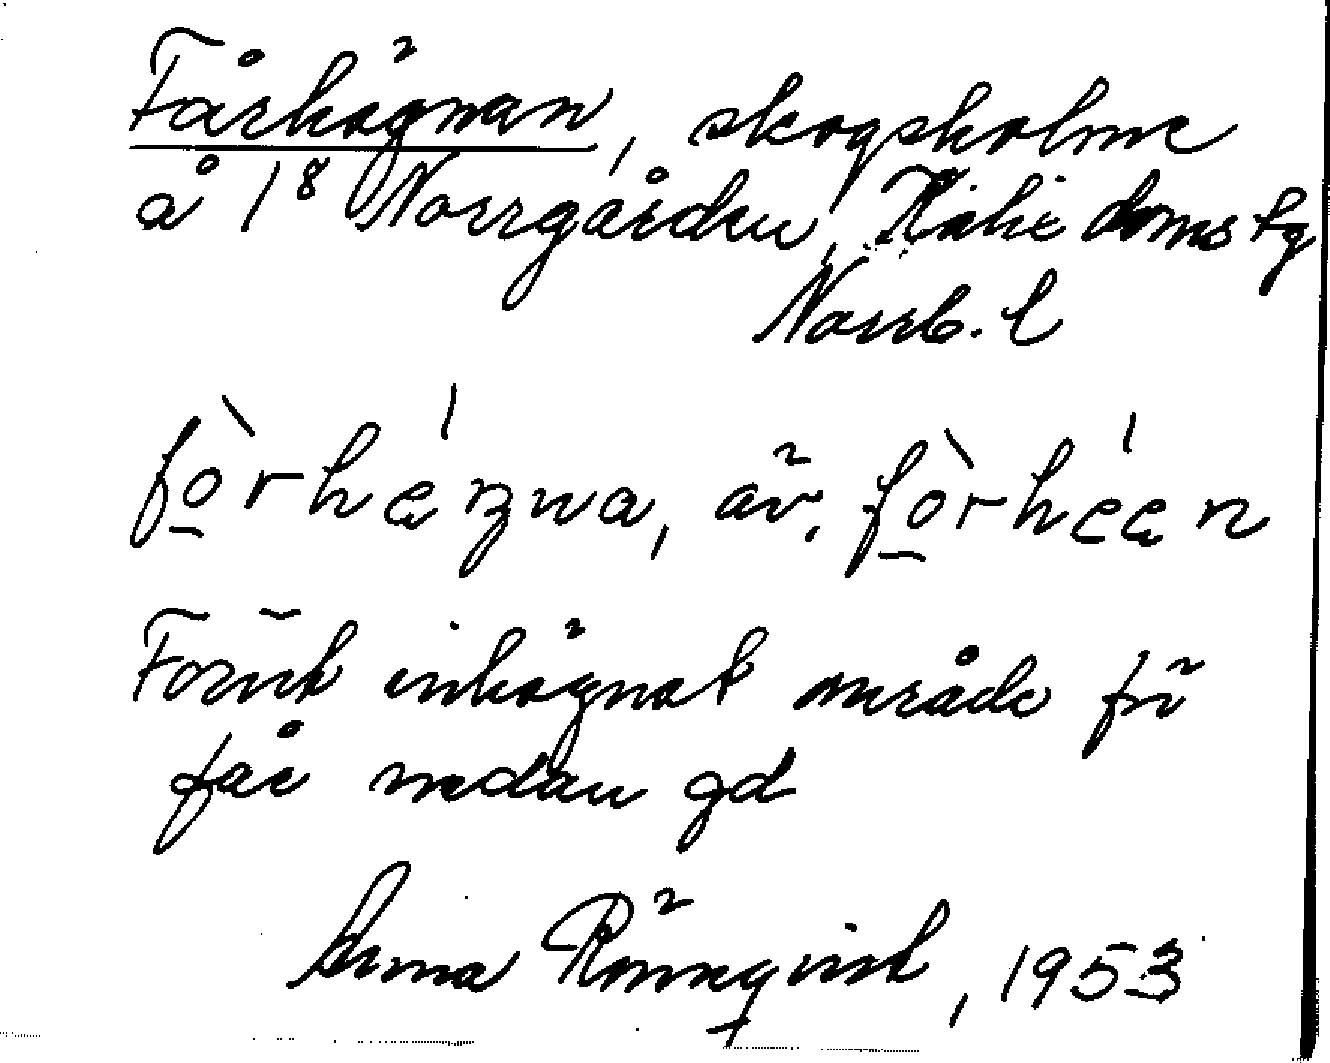 Fårhägnan, skogsholme
å 1⁸ Norrgården, Råne doms tg
Norrb. l
fo̲rhęŋna, äv. fo̲rhęęn
Förut inhägnat område för
får nedan gd
Anna Rönnqvist, 1953